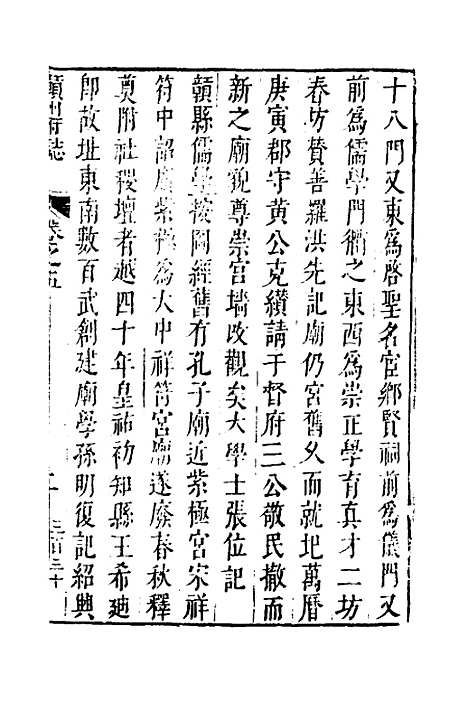 十八門又東為啓聖名宦鄉賢祠前為儀門又
前為儒學門衢之東西為崇正學育真才二坊
春坊贊善羅洪先記廟仍宮舊久而就圮萬曆
庚寅郡守黃公克纘請于督府三公敬民撤而
新之廟貌尊崇宮墻改觀矣大學士張位記
贛縣儒學按圖經舊有孔子廟近紫極宮宋祥
符中詔廣紫極為大中祥符宮廟遂廢春秋釋
奠附社稷壇者越四十年皇祐初知縣王希
即故址東南數百武創建廟學孫明復記紹興
贛州府誌
卷之五
三百三十